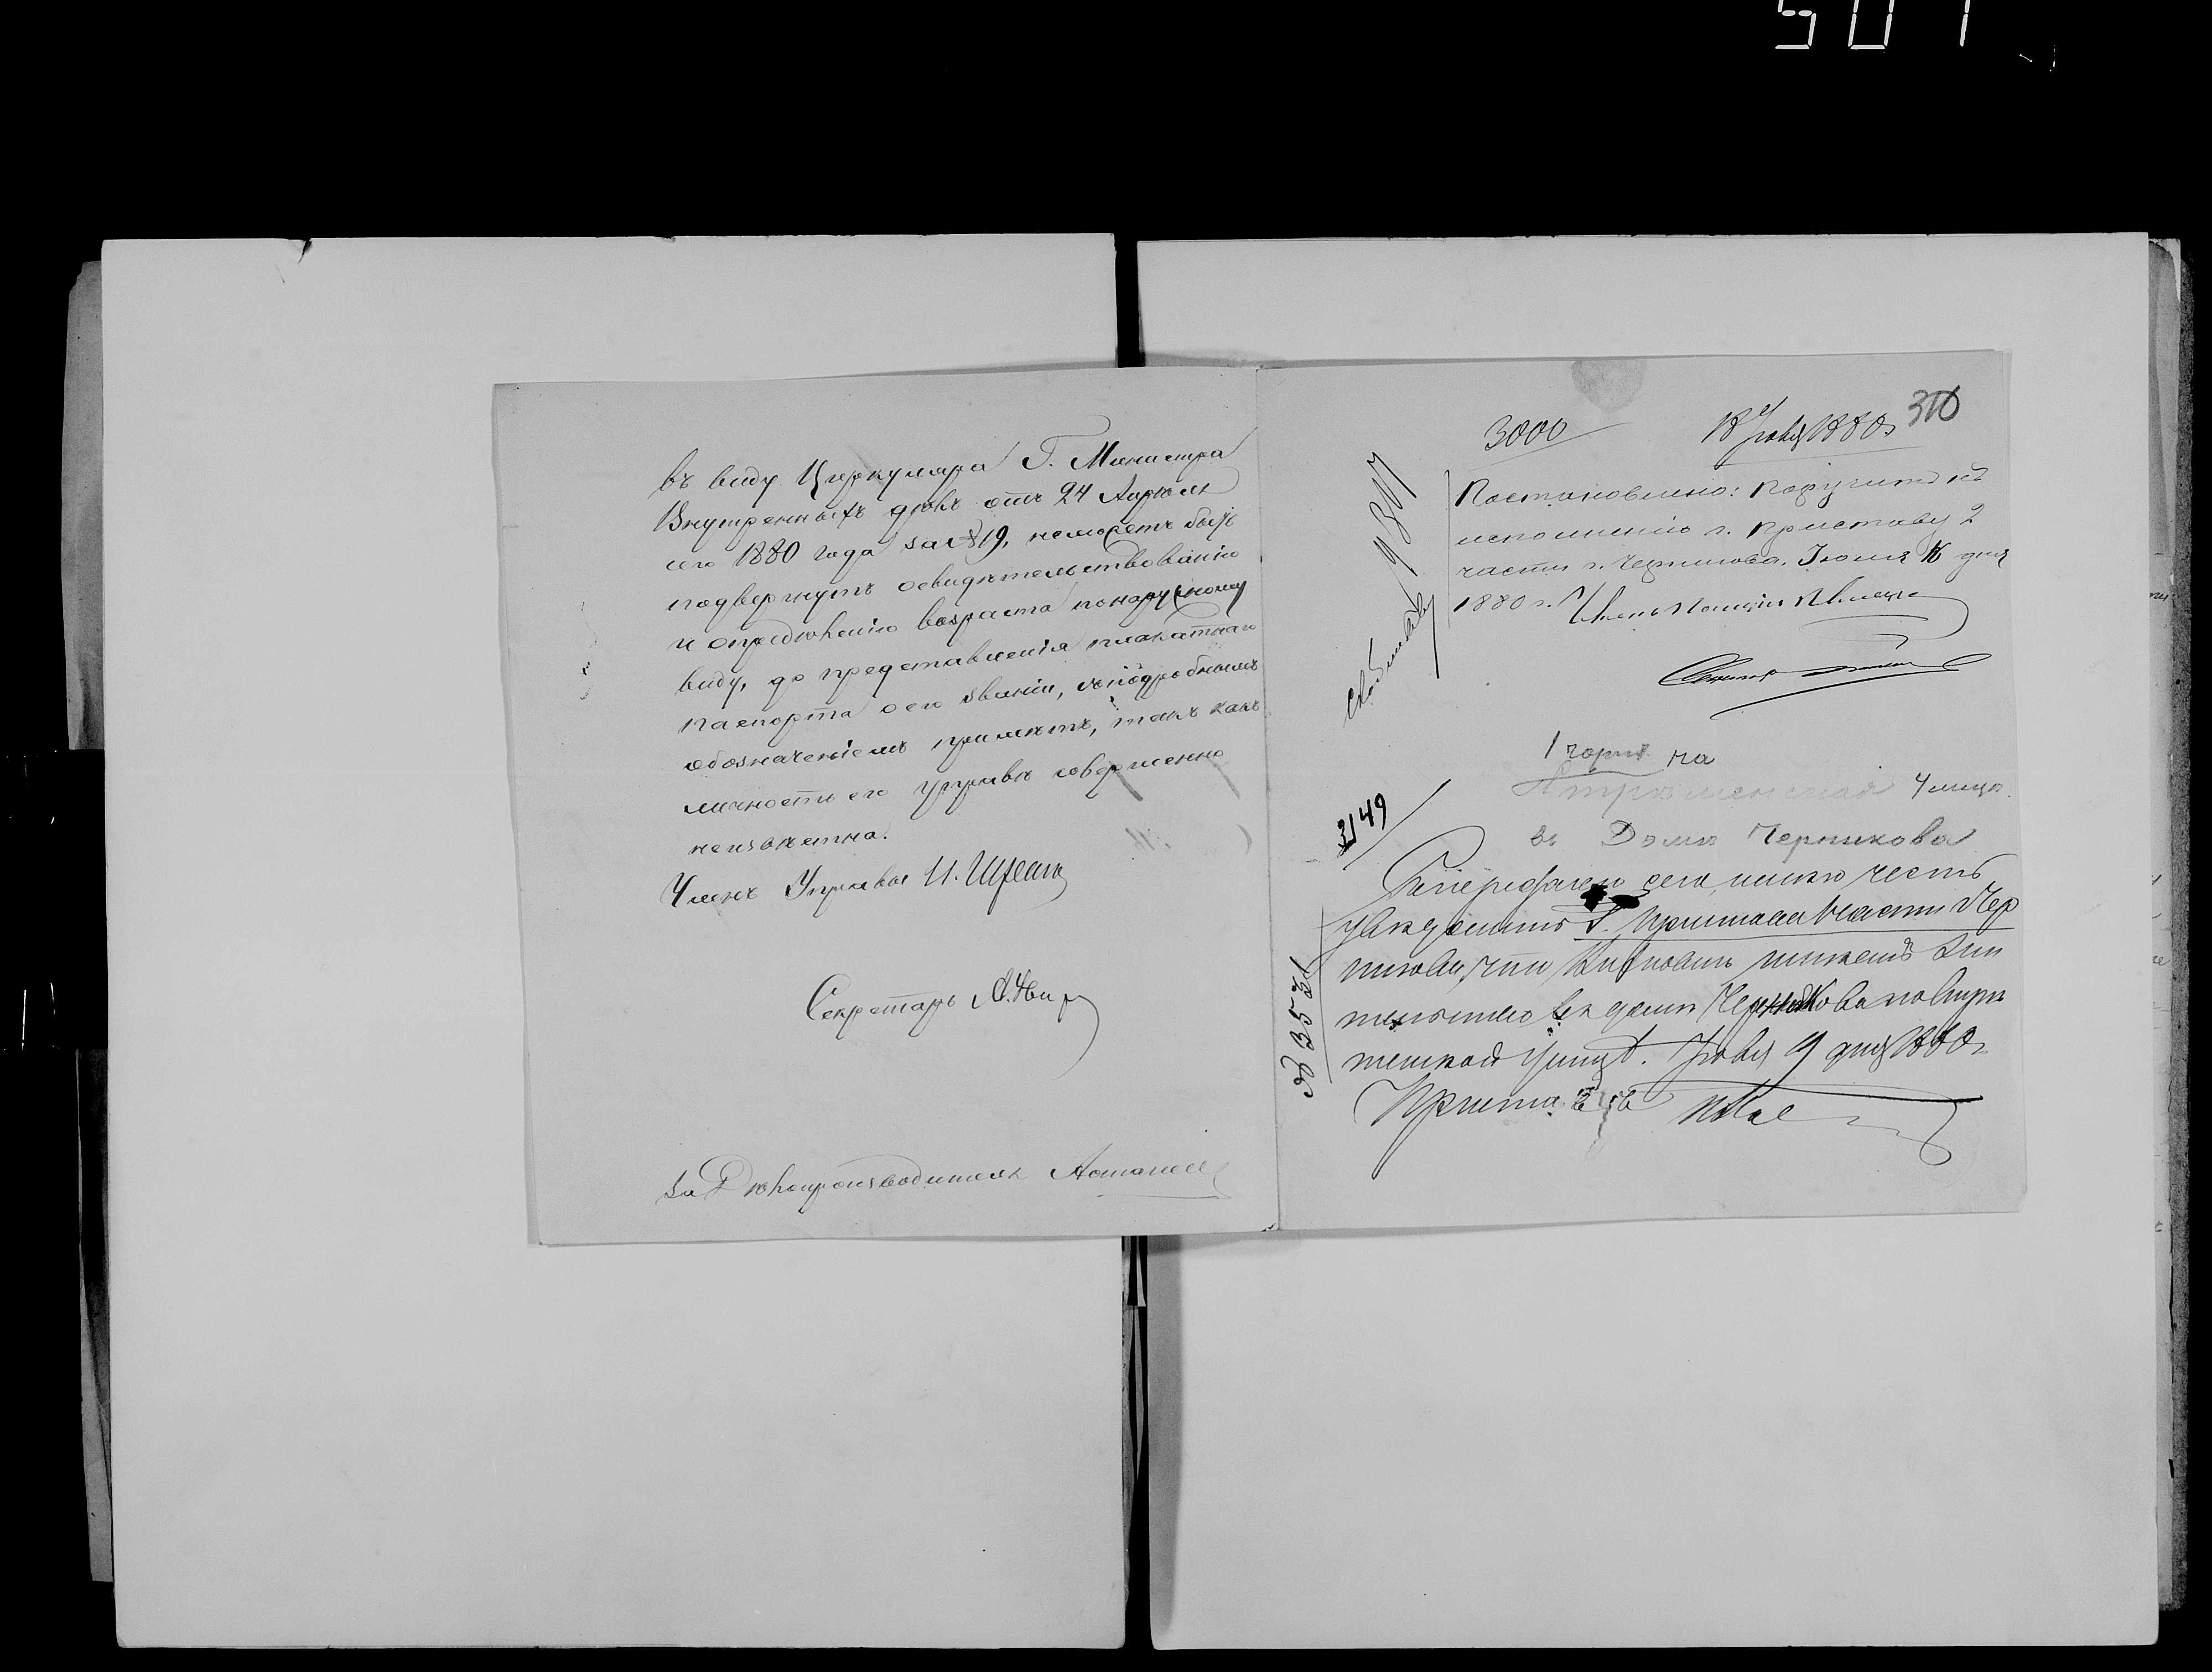 501
въ виду Циркуляра Г. Министра
Внутренныхъ дѣлъ отъ 24 Апрѣля
сего 1880 года за № 19, неможетъ быть
подвергнутъ освидѣтельствованію
и опредѣленію возраста понаружному
виду, до представленія плакатнаго
паспорта о его званіи, съ подробнымъ
обозначеніемъ примѣтъ, такъ какъ
личность его Управѣ совершенно
неизвѣстна.
Членъ Управы И.
Секретарь А.
за Дѣлопроизводителя
310
3000 18 Іюня 1880 г.
Постановлено: Поручить къ
исполненію г. Приставу 2
части г. Чернигова. Іюня 18 дня
1880 г.
1 части на
улица
въ Домѣ Черникова
3149
Съ передачею сего имѣю честь
увѣдомить Г. Пристава 1 части Чер
нигова, что
въ домѣ Черникова
улицѣ. Іюня 9 дня 1880 г.
Приставъ 2 ч.
№ 3531